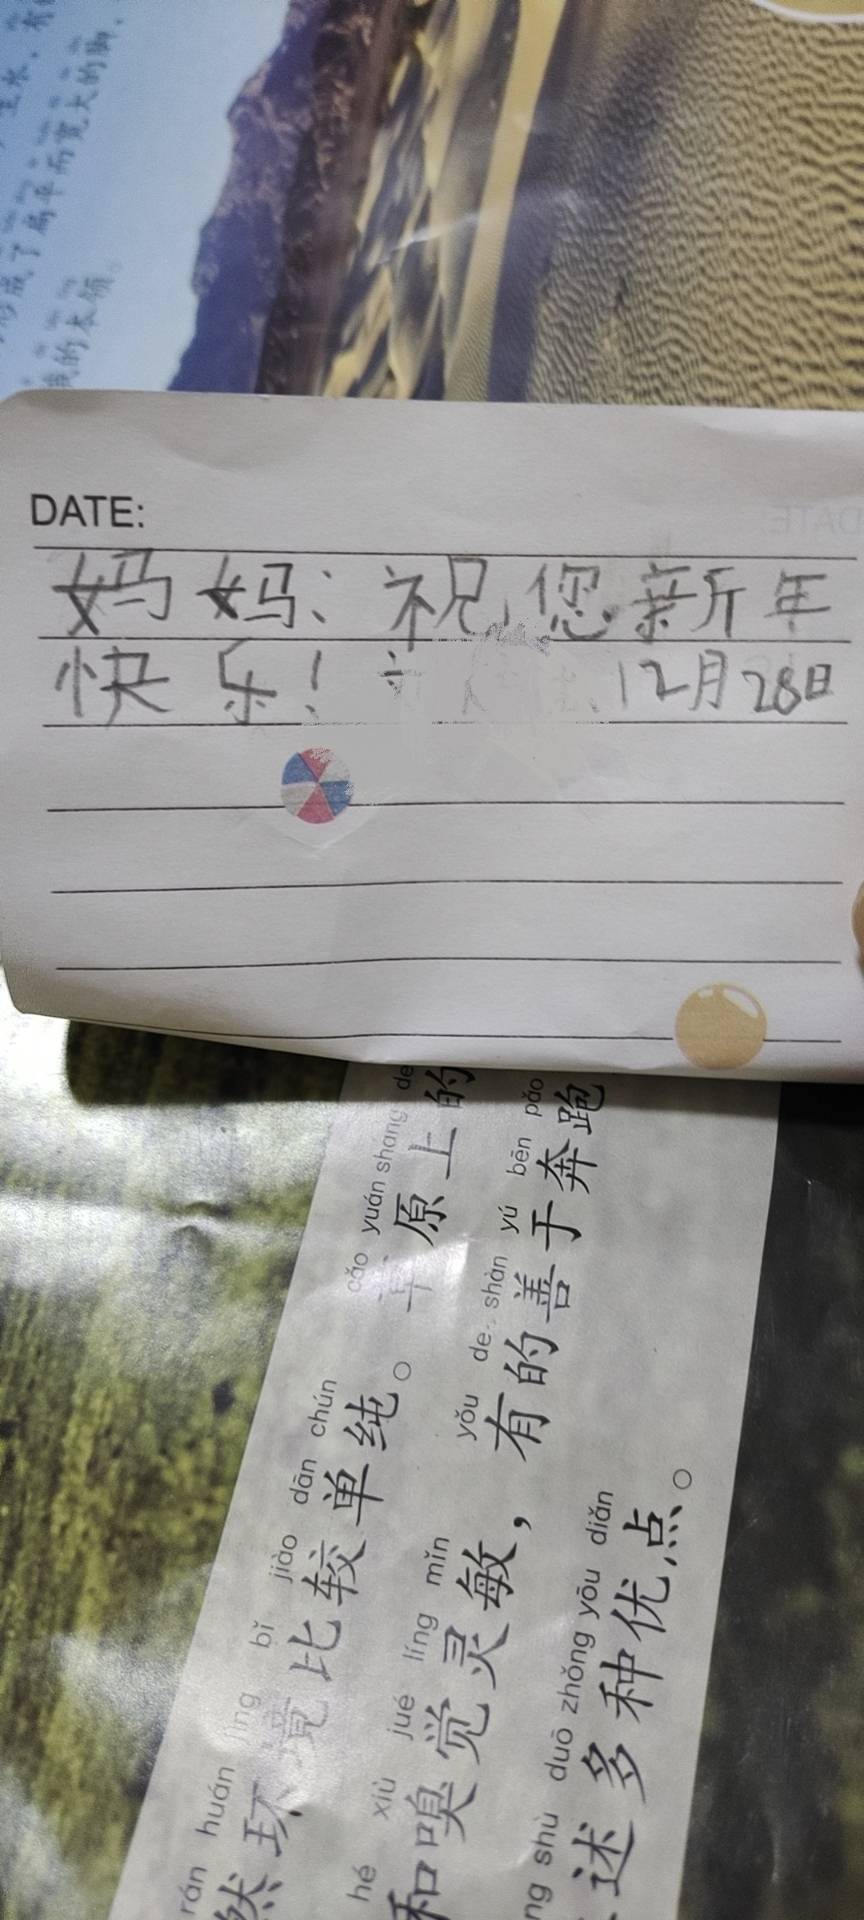 DATE:
妈妈：祝您新年
快乐！ 12月28日
cǎo yuán shang de
草原上的
yǒu de shàn yú bēn pǎo
，有的善于奔跑
rán huán jìng bǐ jiào dān chún
然环境比较单纯。
hé xiù jué líng mǐn
和嗅觉灵敏
shù duō zhǒng yōu diǎn
述多种优点。